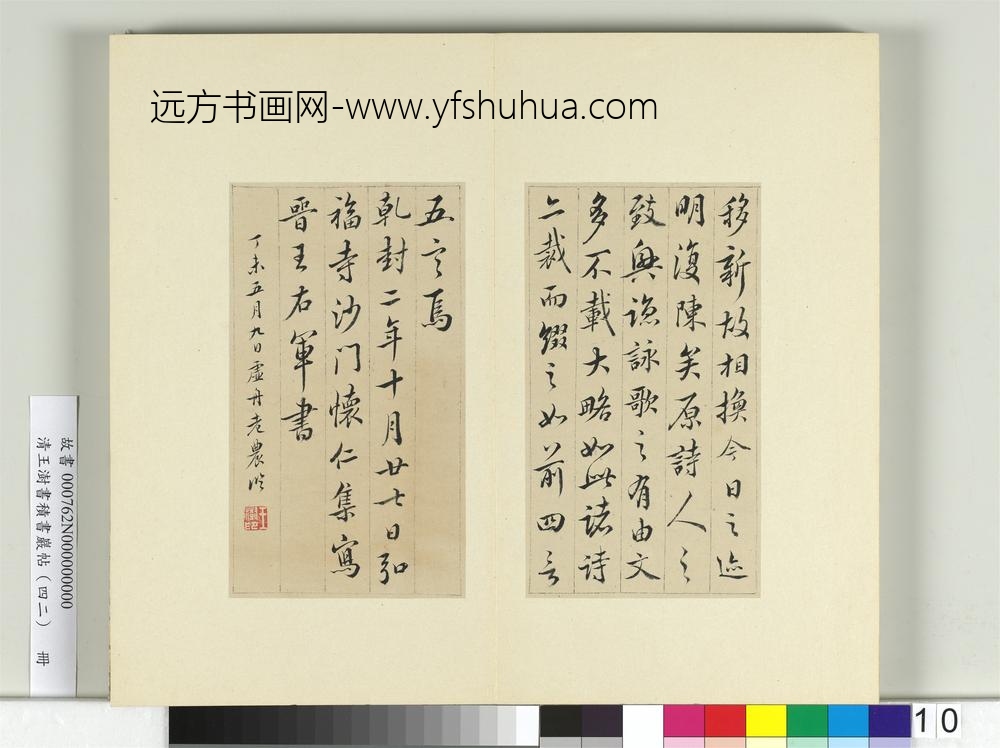 远方书画网-www.yfshuhua.com
移新故相換今日之迹
明復陳矣原詩人之
致興諒詠歌之有由文
多不載大略如此諸詩
亦裁而綴之如前四言
五言焉
乾封二年十月廿七日弘
福寺沙门懷仁集寫
晉王右軍書
丁未五月九日虛舟老農临
故書 000762N000000000
清王澍書積書巖帖（四二） 冊
10